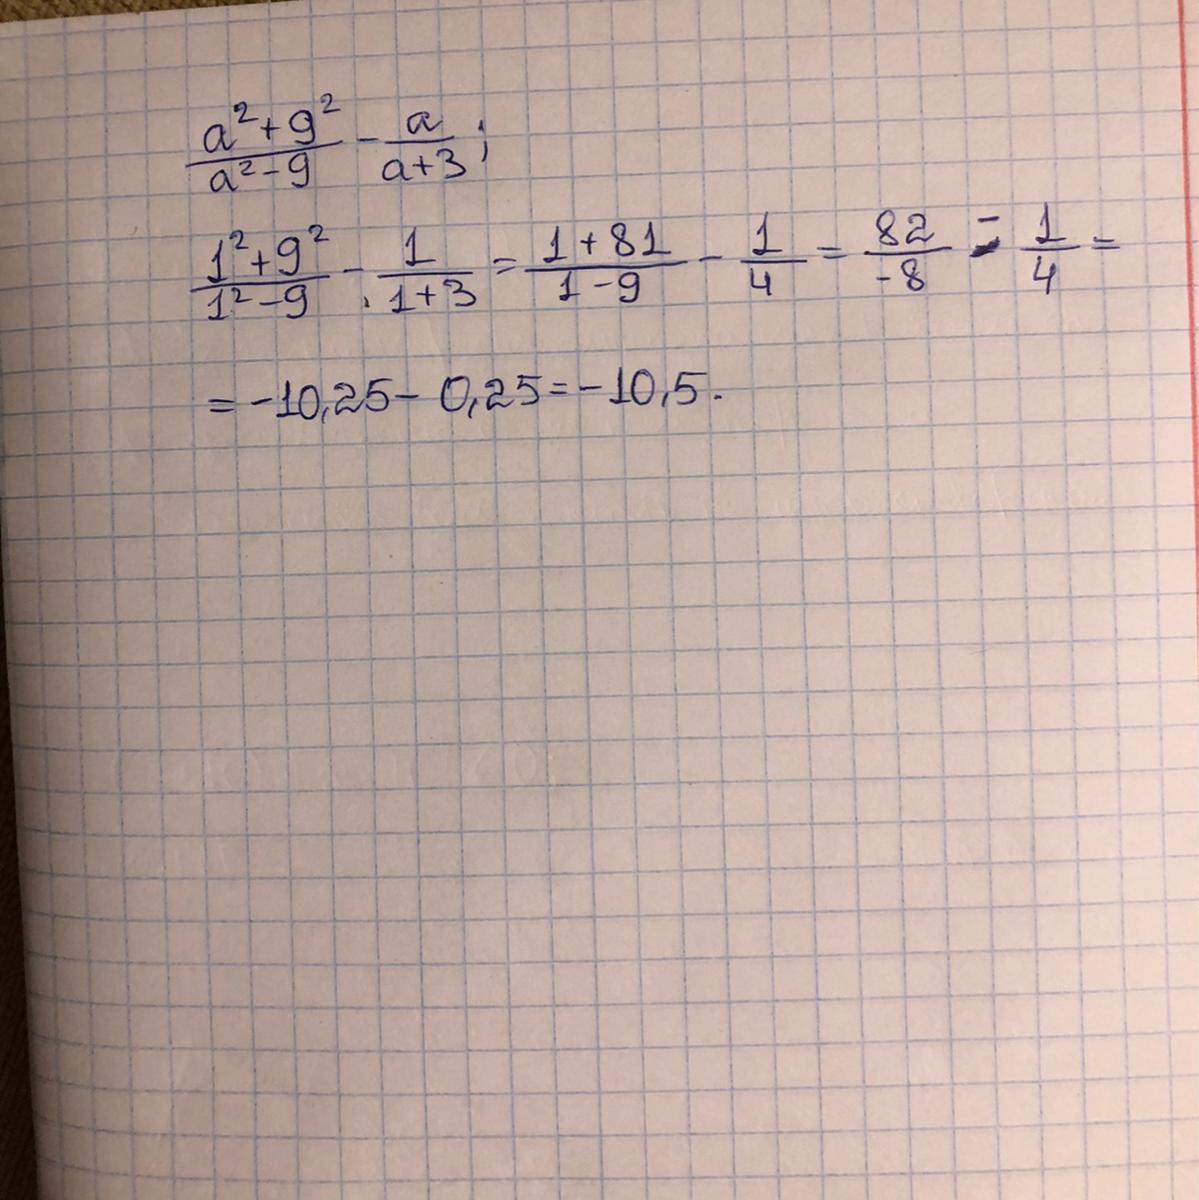 a²+9²/a²-9 - a/a+3;
1²+9²/1²-9 - 1/1+3 = 1+81/1-9 - 1/4 = 82/-8 - 1/4 =
= -10,25 - 0,25 = -10,5.